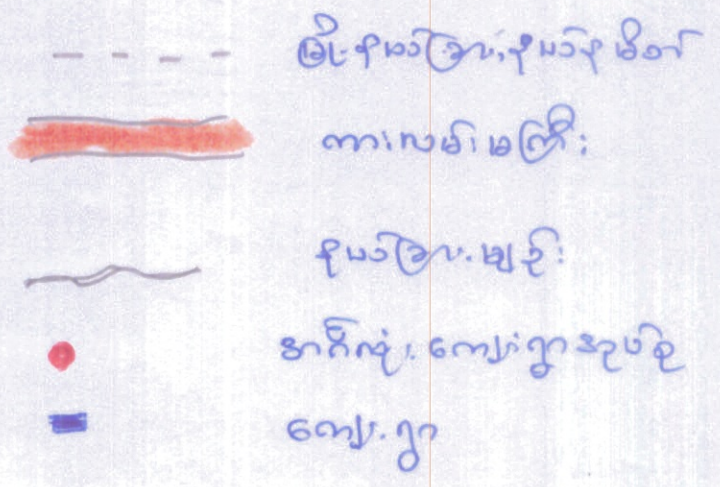 မြို့နယ်ခြား,နယ်နမိတ်
ကားလမ်းမကြီး
နယ်ခြားမျဉ်း
ကျေးရွာအုပ်စု
ကျေးရွာ